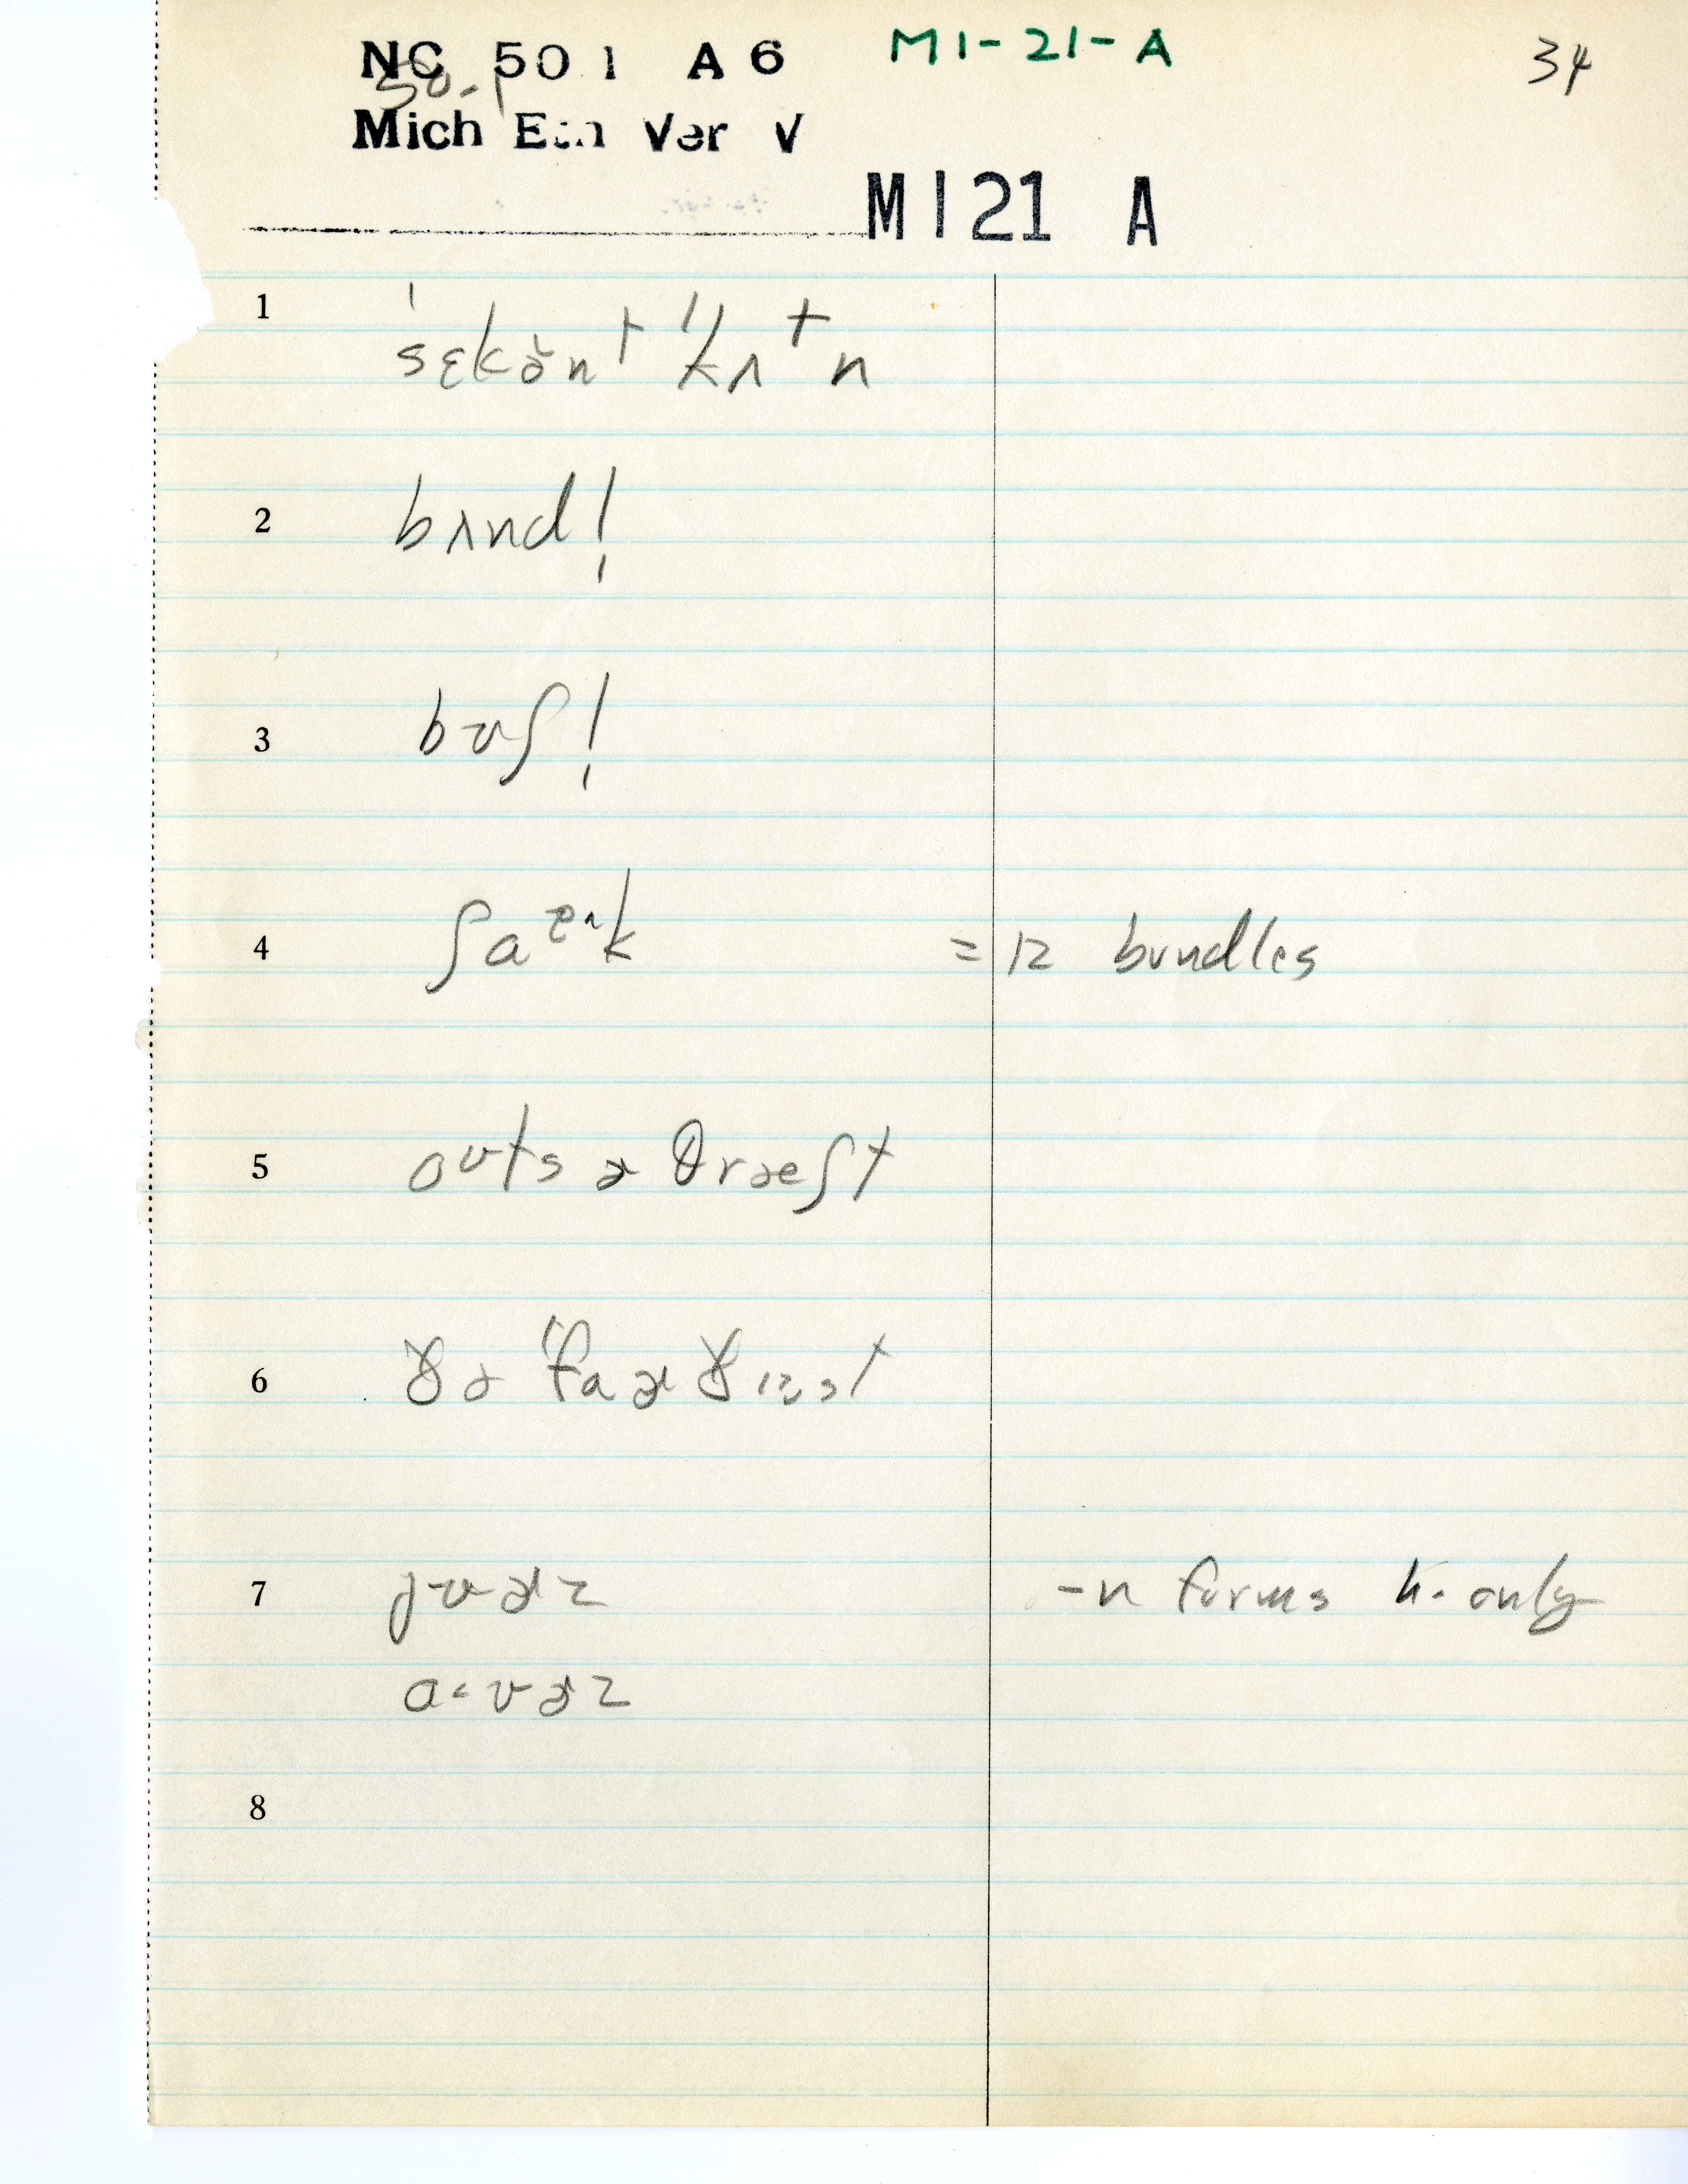 NC 501 A6 M1-21-A 34
50-1
Mich Eth Ver V
M121 A
1 ˈsɛkənt ˌkʌtn
2 bʌnd!
3 buʃ!
4 ʃaᶻʌk = 12 bundles
5 outs ɚ θræʃt
6 ðə ˈfaɚðɪst
7 juɚz -n forms h. only
a·uɚz
8